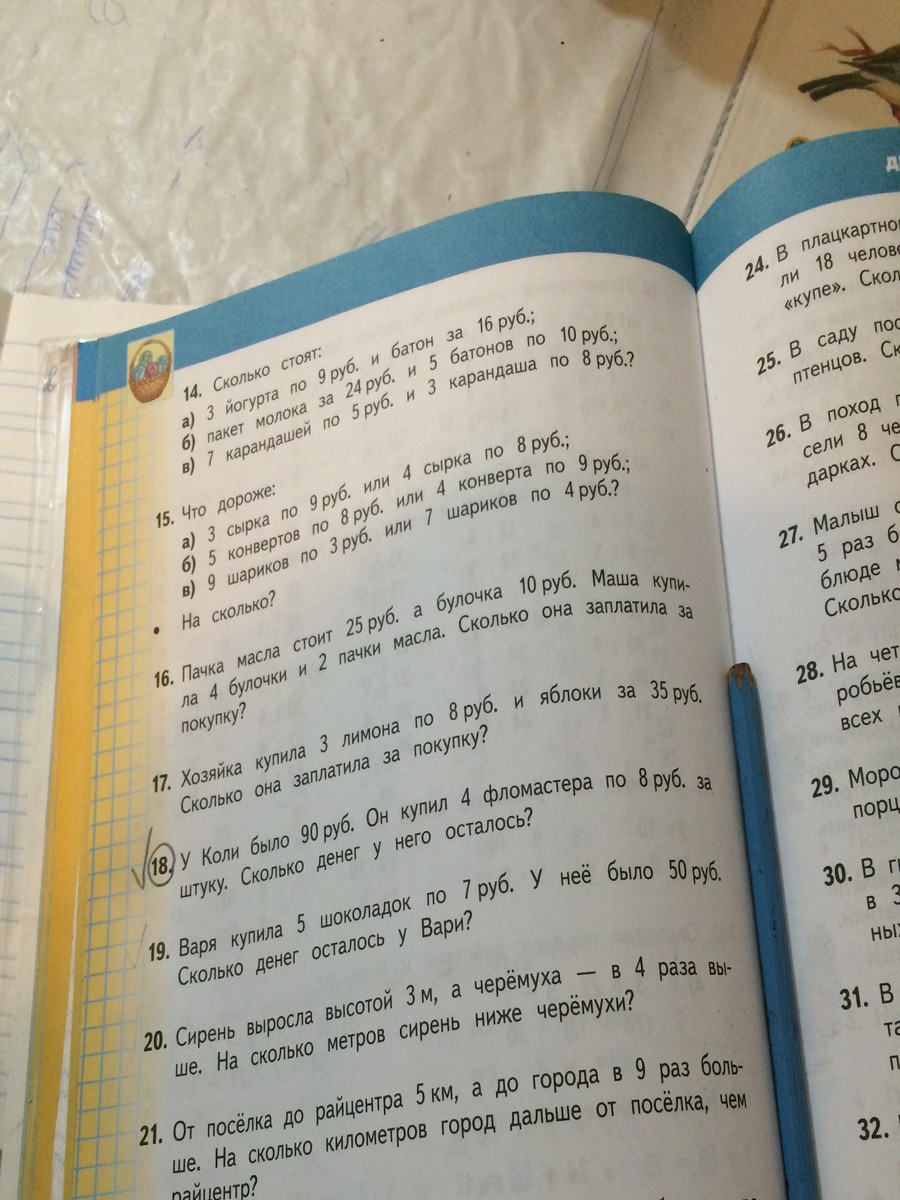 14. Сколько стоят:
а) 3 йогурта по 9 руб. и батон за 16 руб.;
б) пакет молока за 24 руб. и 5 батонов по 10 руб.;
в) 7 карандашей по 5 руб. и 3 карандаша по 8 руб.?
15. Что дороже:
а) 3 сырка по 9 руб. или 4 сырка по 8 руб.;
б) 5 конвертов по 8 руб. или 4 конверта по 9 руб.;
в) 9 шариков по 3 руб. или 7 шариков по 4 руб.?
• На сколько?
16. Пачка масла стоит 25 руб. а булочка 10 руб. Маша купи-
ла 4 булочки и 2 пачки масла. Сколько она заплатила за
покупку?
17. Хозяйка купила 3 лимона по 8 руб. и яблоки за 35 руб.
Сколько она заплатила за покупку?
18. У Коли было 90 руб. Он купил 4 фломастера по 8 руб. за
штуку. Сколько денег у него осталось?
19. Варя купила 5 шоколадок по 7 руб. У неё было 50 руб.
Сколько денег осталось у Вари?
20. Сирень выросла высотой 3 м, а черёмуха — в 4 раза вы-
ше. На сколько метров сирень ниже черёмухи?
21. От посёлка до райцентра 5 км, а до города в 9 раз боль-
ше. На сколько километров город дальше от посёлка, чем
райцентр?
24. В плацкартно
ли 18 челове
«купе». Скол
25. В саду пос
птенцов. Ск
26. В поход п
сели 8 че
дарках. С
27. Малыш с
5 раз б
блюде м
Сколько
28. На чет
робьёв
всех
29. Моро
порц
30. В г
в 3
ных
31. В
та
п
32.